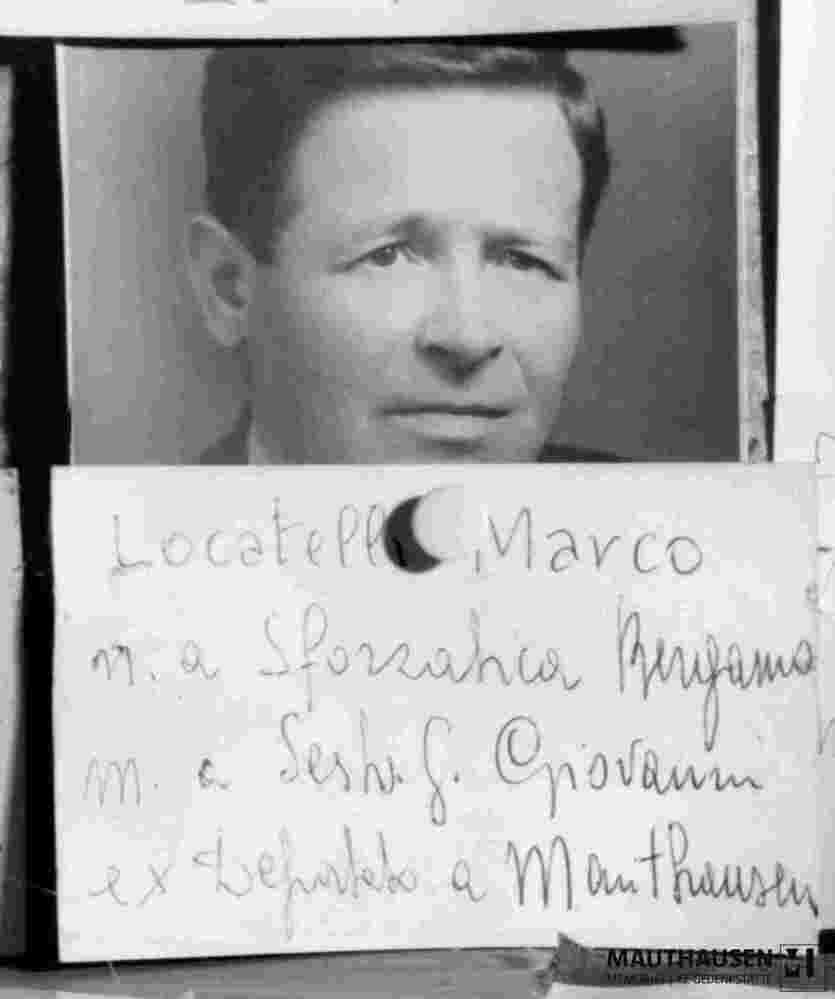 Locatelli, Marco
n. a Sforzatica Bergamo
m. a Sesto S. Giovanni
ex Deportato a Mauthausen
MAUTHAUSEN
MEMORIAL | KZ-GEDENKSTÄTTE